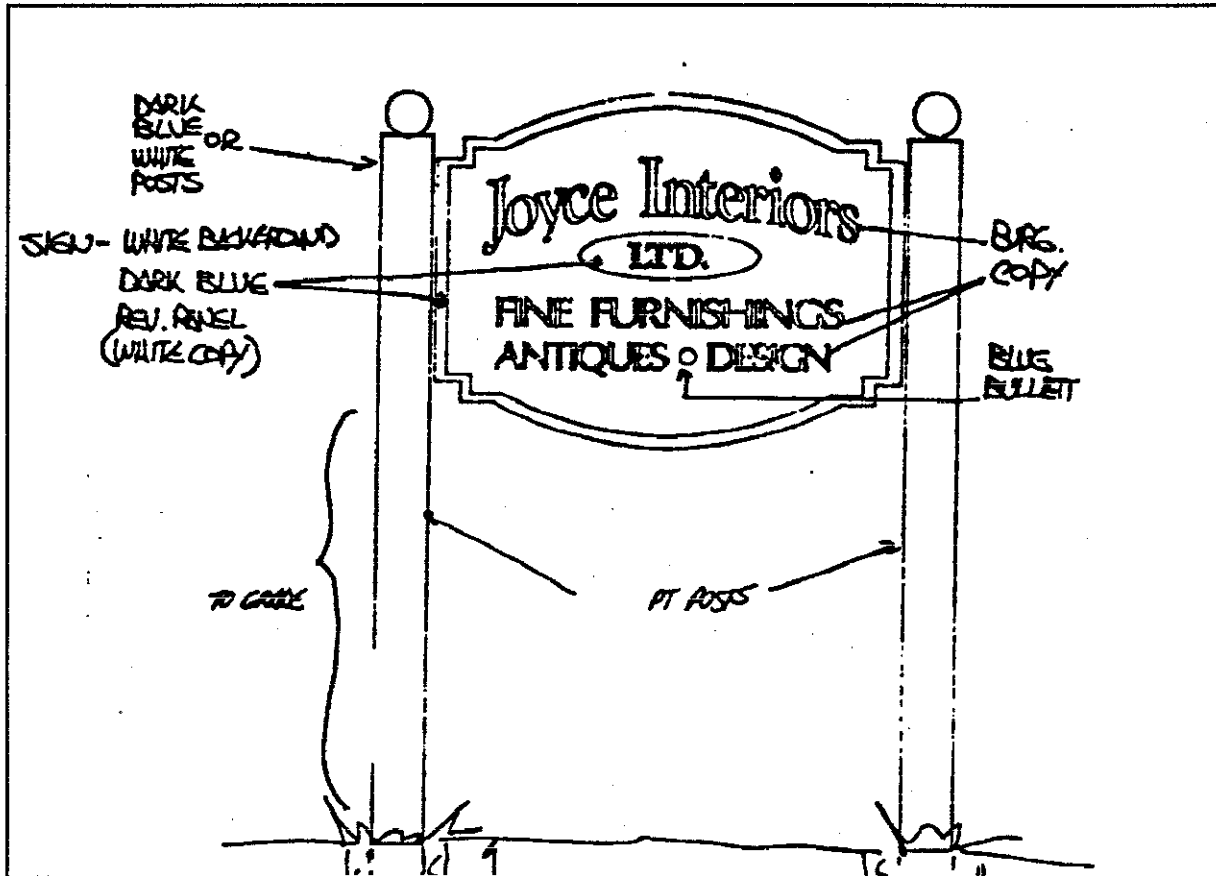 DARK
BLUE OR
WHITE
POSTS
SIGN - WHITE BACKGROUND
DARK BLUE
REV. PANEL
(WHITE COPY)
Joyce Interiors
LTD.
FINE FURNISHINGS
ANTIQUES ○ DESIGN
BURG.
COPY
BLUE
BULLETT
TO GRADE
PT POSTS